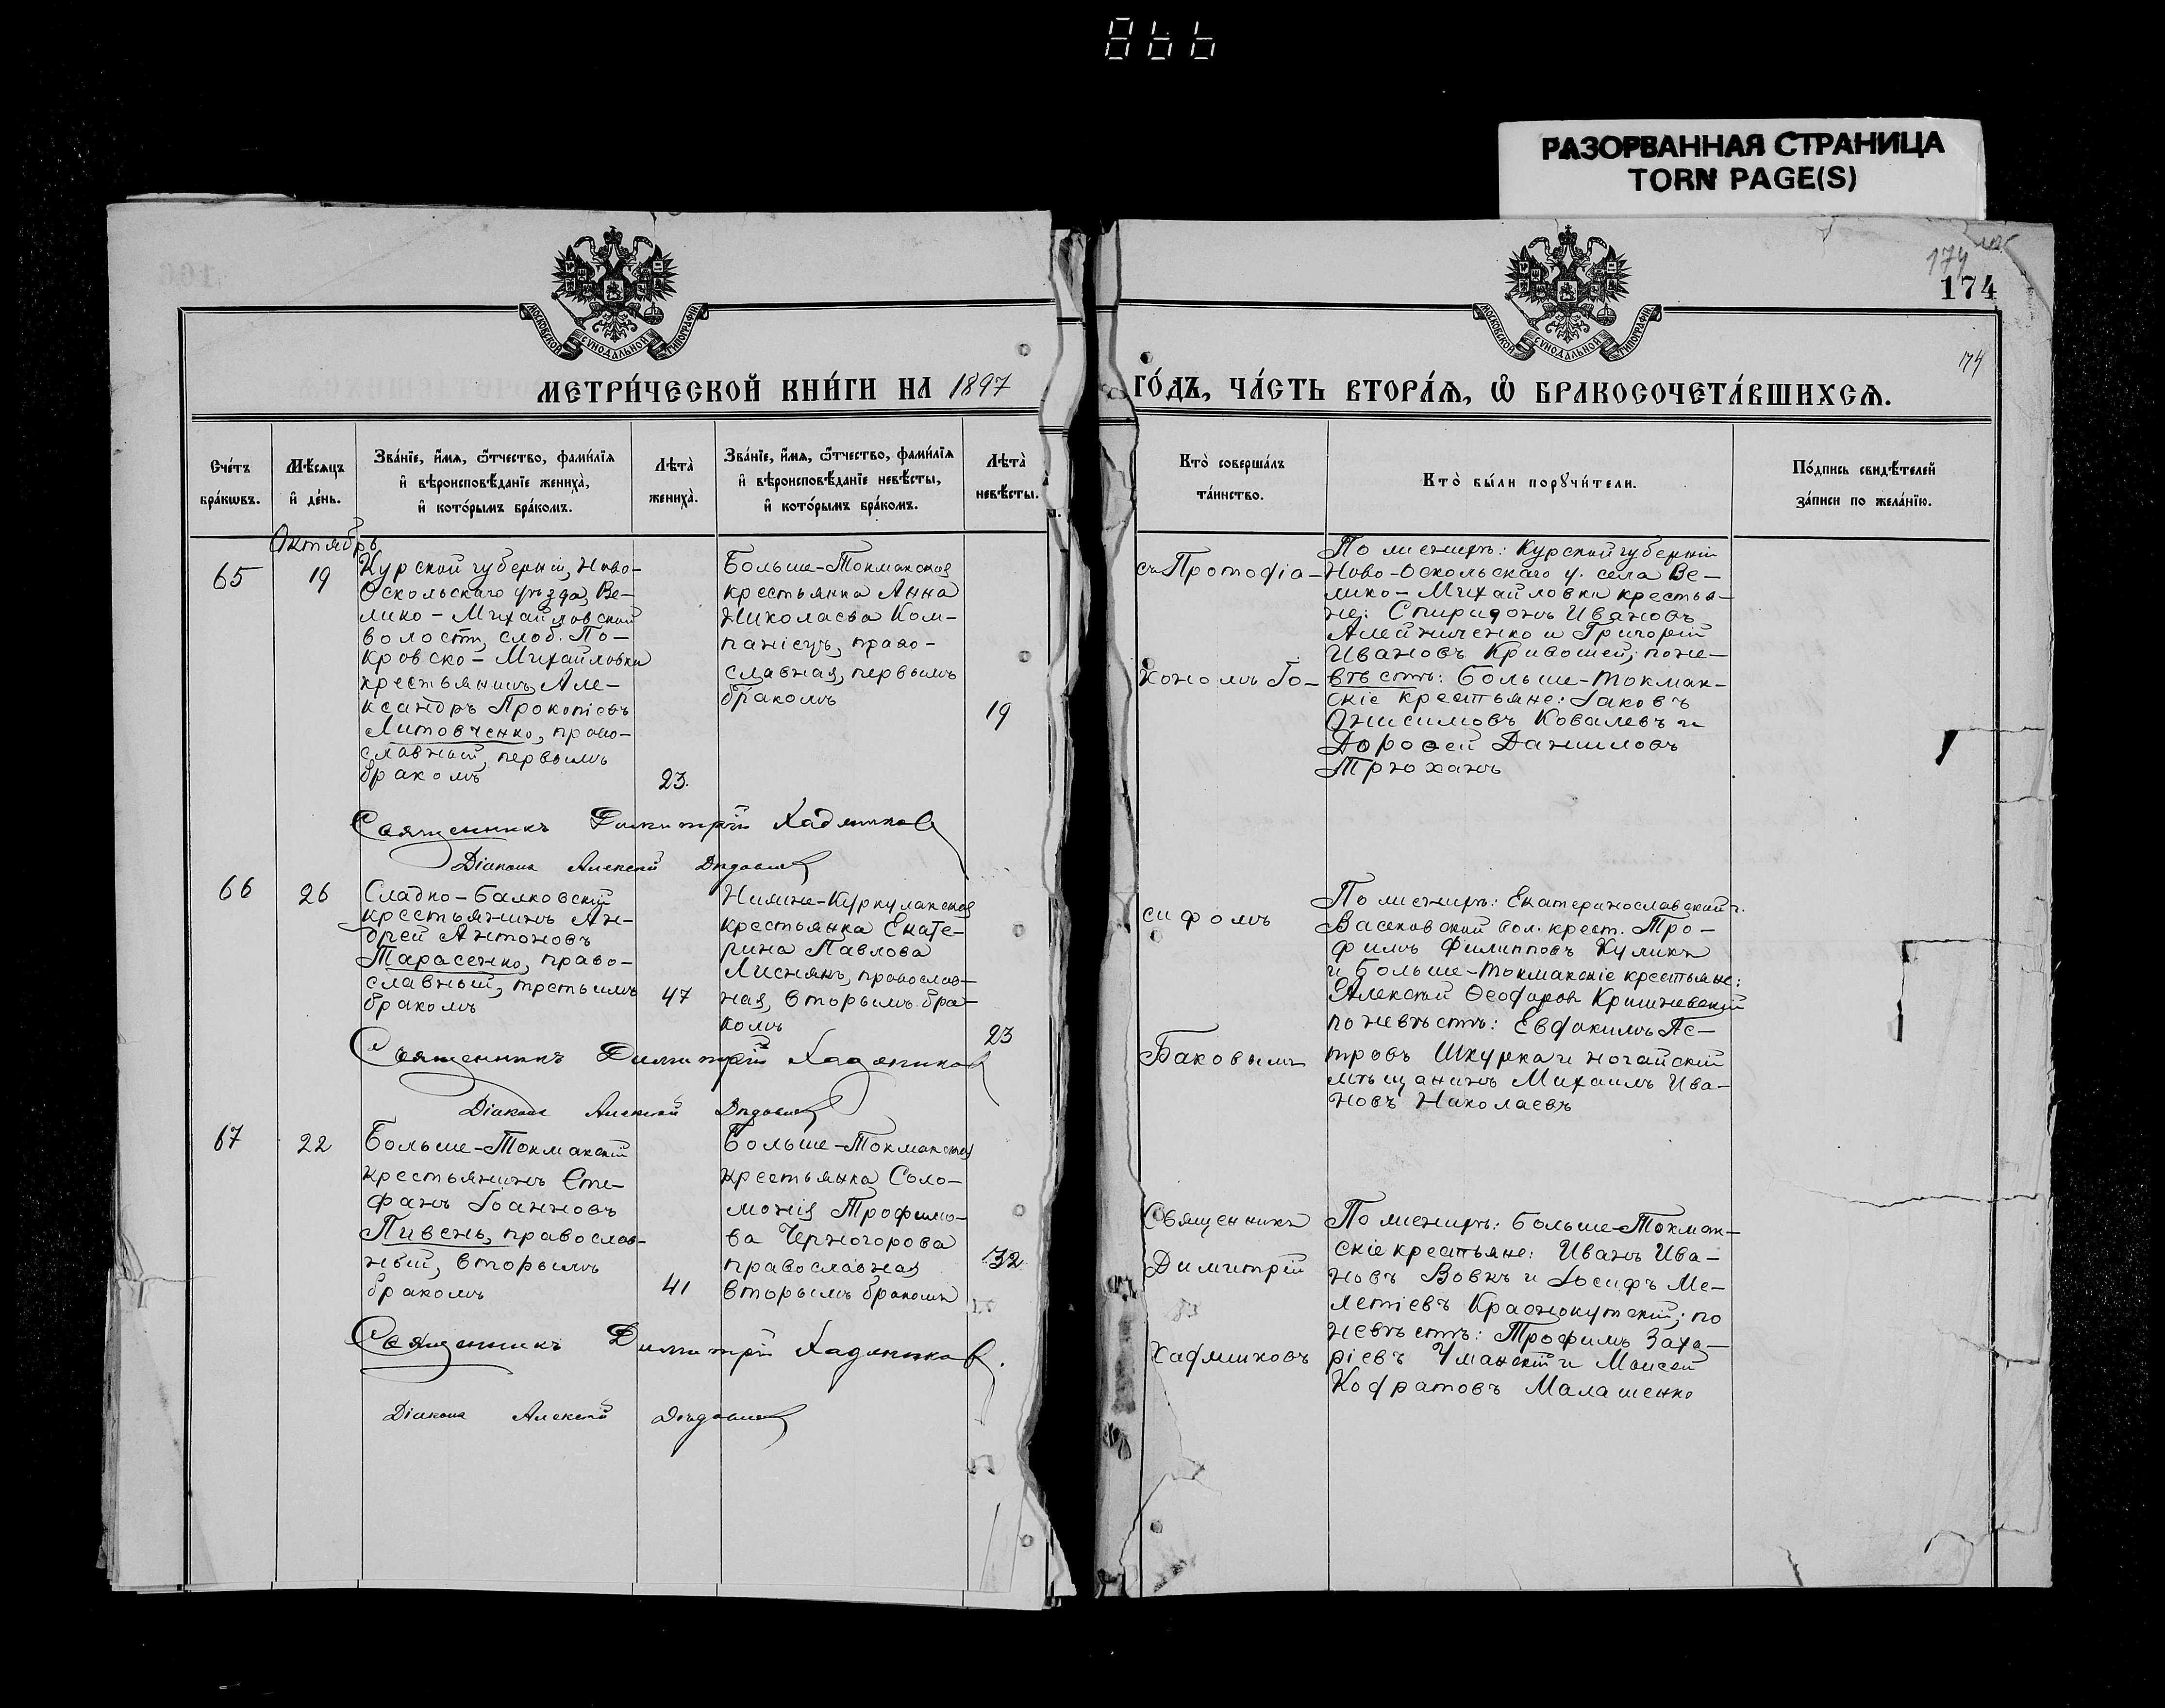 866
РАЗОРВАННАЯ СТРАНИЦА
TORN PAGE(S)
174
174
174
МОСКОВСКОЙ СѴНОДАЛЬНОЙ ТИПОГРАФІИ
МОСКОВСКОЙ СѴНОДАЛЬНОЙ ТИПОГРАФІИ
МЕТРИ́ЧЕСКОЙ КНИ́ГИ НА 1897
ГО́ДЪ, ЧА́СТЬ ВТОРА́Ѧ, Ѡ҆ БРАКОСОЧЕТА́ВШИХСѦ.
Сче́тъ
бра́кѡвъ.
Мѣ́сѧцъ
и҆ де́нь.
Зва́нїе, и҆́мѧ, ѻ҆́тчество, фами́лїѧ
и҆ вѣроисповѣ́данїе жениха̀,
и҆ кото́рымъ бра́комъ.
Лѣта̀
жениха̀.
Зва́нїе, и҆́мѧ, ѻ҆́тчество, фами́лїѧ
и҆ вѣроисповѣ́данїе невѣ́сты,
и҆ кото́рымъ бра́комъ.
Лѣта̀
невѣ́сты.
Кто̀ соверша́лъ
та́инство.
Кто̀ бы́ли порꙋчи́тели.
По́дпись свидѣ́телей
за́писи по жела́нїю.
Октябрь
65
19
Курской губерніи, Ново-
Оскольскаго уѣзда, Ве-
лико-Михайловской
волости, слоб. По-
кровско-Михайловки
крестьянинъ Але-
ксандръ Прокопіевъ
Литовченко, право-
славный, первымъ
бракомъ
23.
Больше-Токмакская
крестьянка Анна
Николаева Ком-
паніецъ, право-
славная, первымъ
бракомъ
19
съ Протодіа-
кономъ Іо-
По женихѣ: Курской губерніи
Ново-Оскольскаго у. села Ве-
лико-Михайловки крестья-
не: Спиридонъ Ивановъ
Алейниченко и Григорій
Ивановъ Кривошей; по не-
вѣстѣ: Больше-Токмак-
скіе крестьяне: Іаковъ
Онисимовъ Ковалевъ и
Дорофей Даниловъ
Трюханъ
Священникъ Димитрій Хаджиновъ
Діаконъ Алексій
66
26
Сладко-Балковскій
крестьянинъ Ан-
дрей Антоновъ
Тарасенко, право-
славный, третьимъ
бракомъ
47
Нижне-Куркулакская
крестьянка Екате-
рина Павлова
Лиснякъ, православ-
ная, вторымъ бра-
комъ
23
сифомъ
Баковымъ
По женихѣ: Екатеринославской г.
Васьковской вол. крест. Тро-
фимъ Филипповъ Куликъ
и Больше-Токмакскіе крестьяне:
Алексѣй Ѳеодоровъ Кришневскій
по невѣстѣ: Евдокимъ Пе-
тровъ Шкурка и ногайскій
мѣщанинъ Михаилъ Ива-
новъ Николаевъ
Священникъ Димитрій Хаджиновъ
Діаконъ Алексій
67
22
Больше-Токмакскій
крестьянинъ Сте-
фанъ Іоанновъ
Пивень, православ-
ный, вторымъ
бракомъ
41
Больше-Токмакская
крестьянка Соло-
монія Трофимо-
ва Черногорова
православная
вторымъ бракомъ
32
Священникъ
Димитрій
Хаджиновъ
По женихѣ: Больше-Токмак-
скіе крестьяне: Иванъ Ива-
новъ Вовкъ и Іосифъ Ме-
летіевъ Краснокутскій; по
невѣстѣ: Трофимъ Заха-
ріевъ Уманскій и Моисей
Кодратовъ Малашенко
Священникъ Димитрій Хаджиновъ.
Діаконъ Алексій